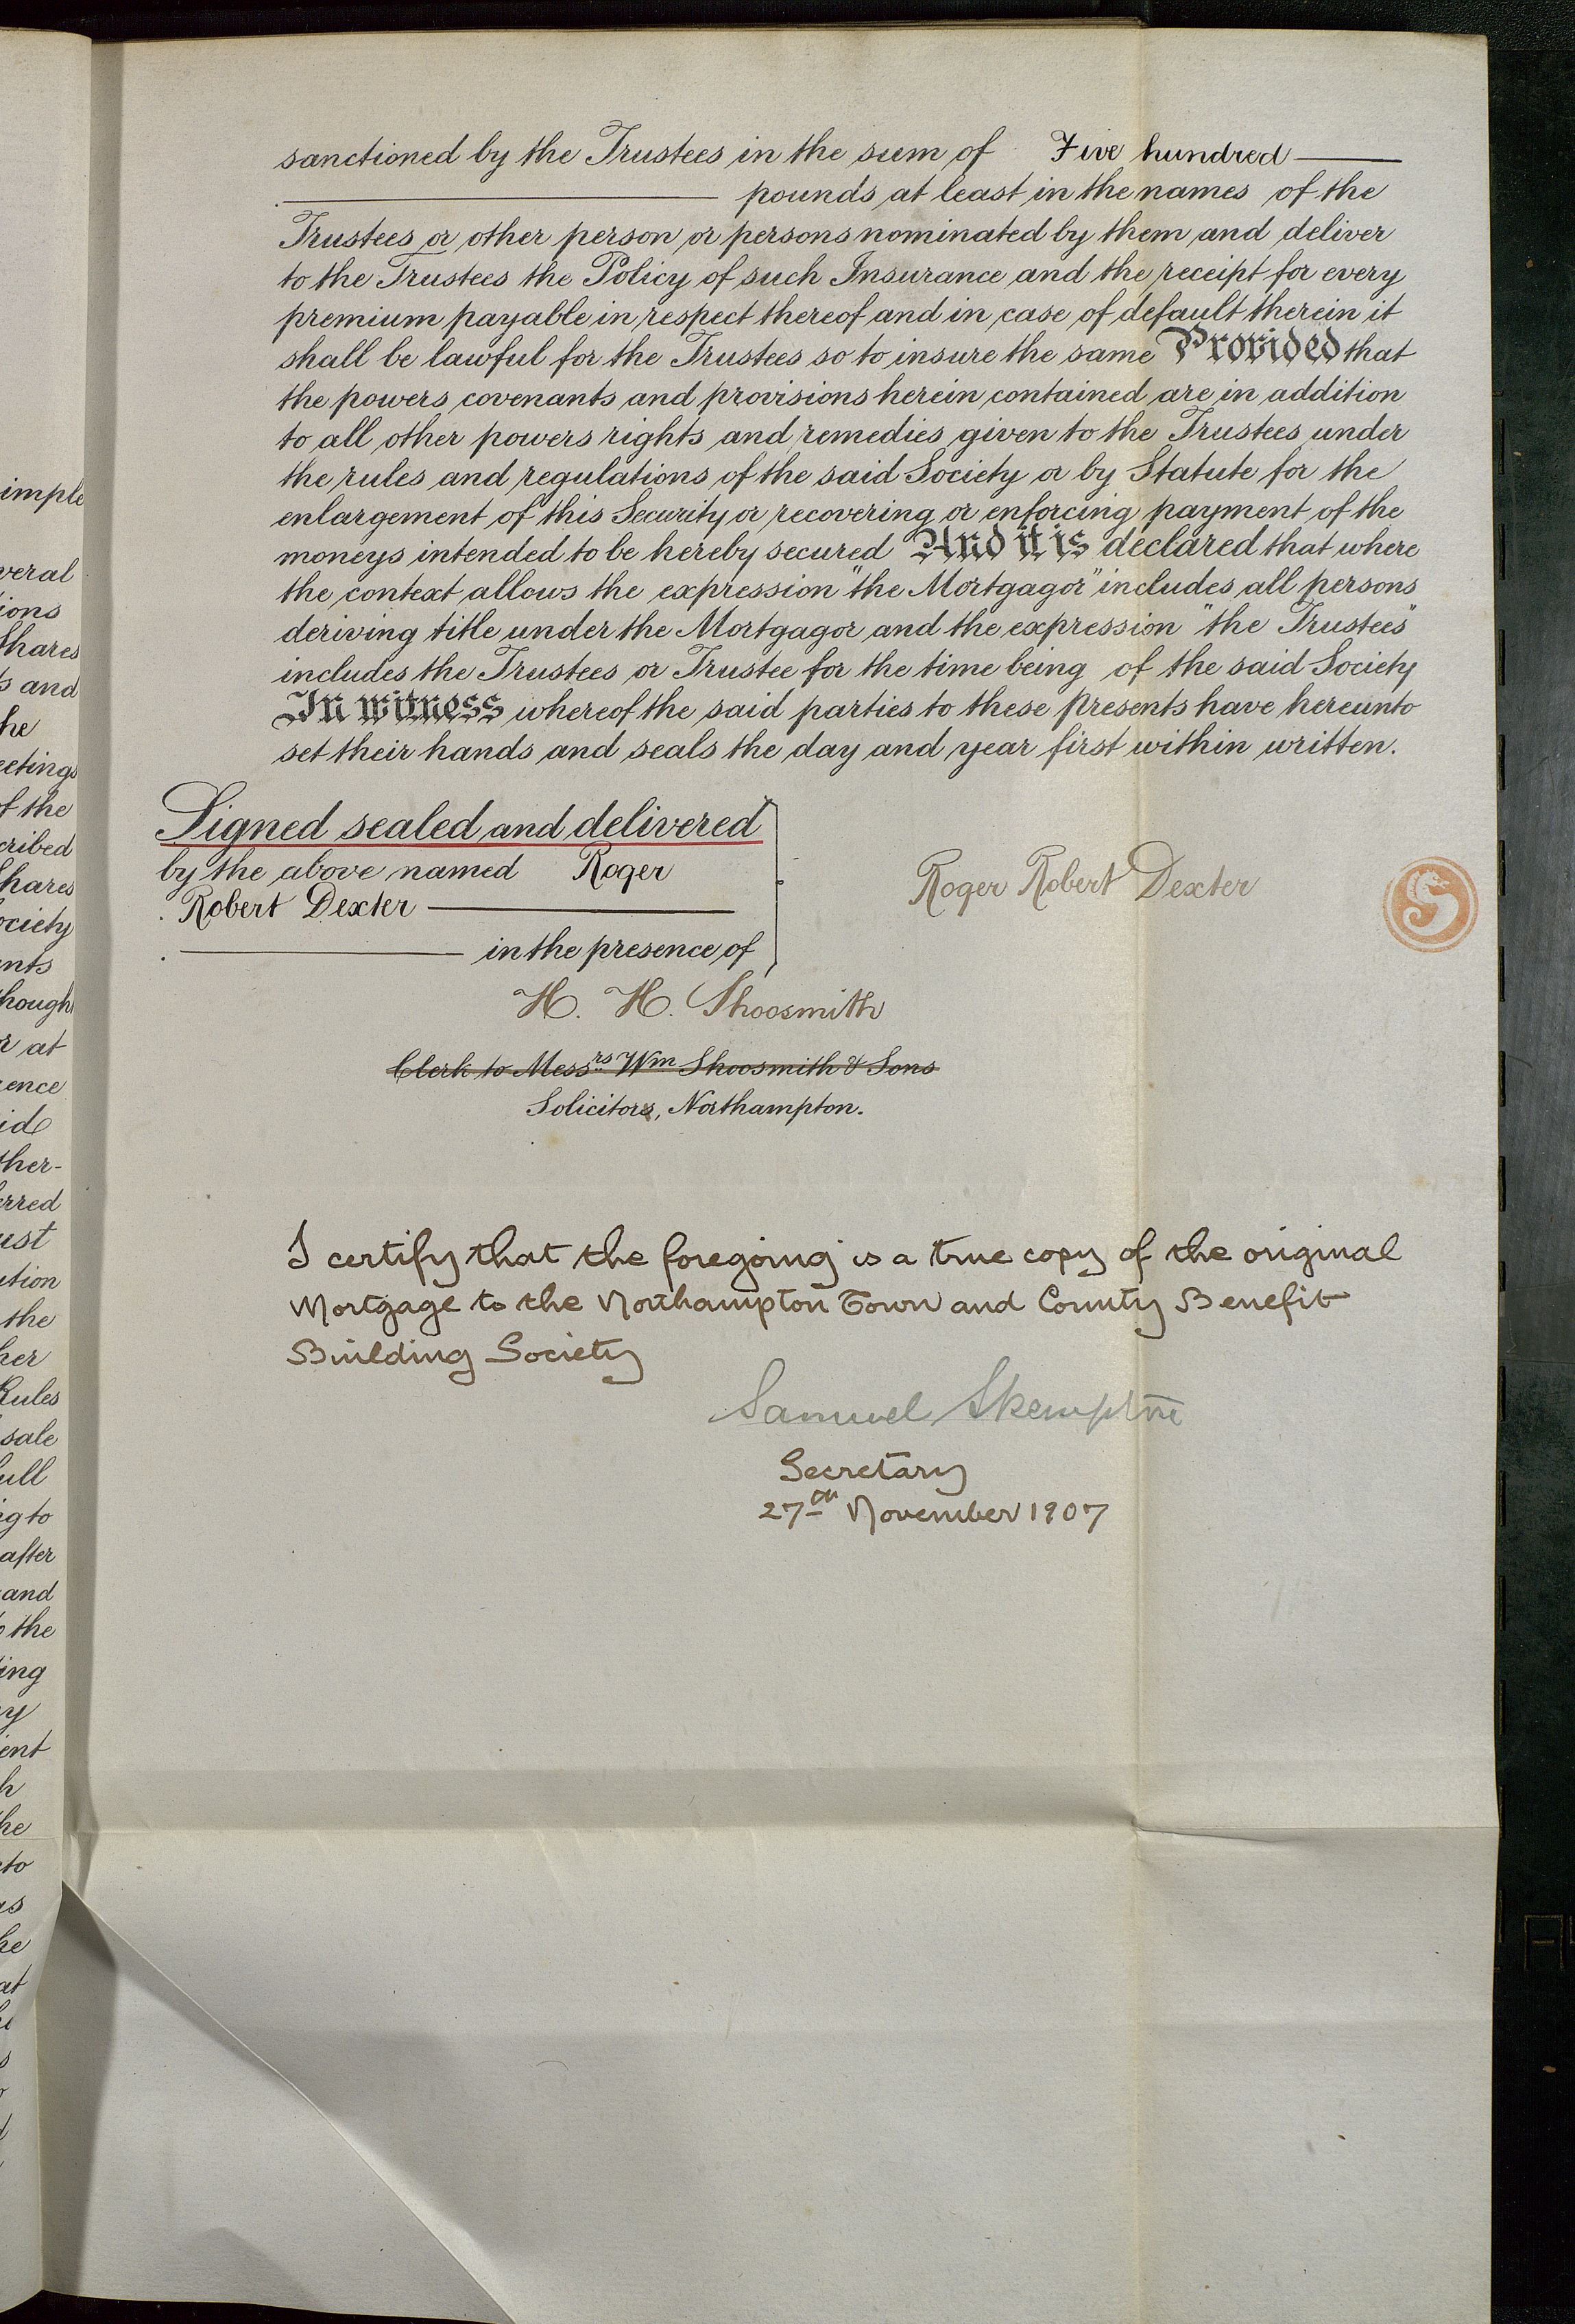 sanctioned by the Trustees in the sum of Five hundred
pounds at least in the names of the
Trustees or other person or persons nominated by them and deliver
to the Trustees the Policy of such Insurance and the receipt for every
premium payable in respect thereof and in case of default therein it
shall be lawful for the Trustees so to insure the same Provided that
the powers covenants and provisions herein contained are in addition
to all other powers rights and remedies given to the Trustees under
the rules and regulations of the said Society or by Statute for the
enlargement of this Security or recovering or enforcing payment of the
moneys intended to be hereby secured And it is declared that where
the context allows the expression "the Mortgagor" includes all persons
deriving title under the Mortgagor and the expression "the Trustees"
includes the Trustees or Trustee for the time being of the said Society
In witness whereof the said parties to these presents have hereunto
set their hands and seals the day and year first within written.
Signed sealed and delivered
by the above named Roger
Robert Dexter
in the presence of
Roger Robert Dexter
H. H. Shoosmith
Clerk to Messrs Wm Shoosmith & Sons
Solicitors, Northampton.
I certify that the foregoing is a true copy of the original
Mortgage to the Northampton Town and County Benefit
Building Society
Samuel Skempton
Secretary
27th November 1907
imple
veral
ions
Shares
s and
he
eetings
of the
cribed
Shares
ociety
ents
though
or at
ence
id
ther-
erred
ust
ution
the
her
Rules
sale
full
ng to
after
and
the
ing
ent
h
he
to
as
he
at